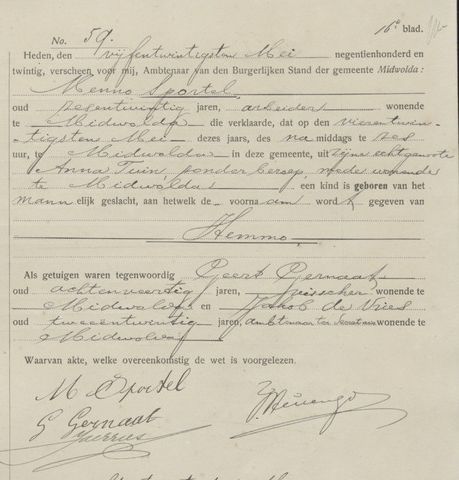 No. 59. 16e blad.
Heden, den vijfentwintigsten Mei negentienhonderd en
twintig, verscheen voor mij, Ambtenaar van den Burgerlijken Stand der gemeente Midwolda:
Menno Sportel
oud zegentwintig jaren, arbeider wonende
te Midwolda die verklaarde, dat op den vierentwin-
tigsten Mei dezes jaars, des na middags te zes
uur, te Midwolda in deze gemeente, uit zijne echtgenoote
Anna Tuin, zonder beroep, mede wonende
te Midwolda een kind is geboren van het
mann elijk geslacht, aan hetwelk de voorna am wordt gegeven van
Hemmo.
Als getuigen waren tegenwoordig Geert Gernaat,
oud achtenveertig jaren, visscher wonende te
Midwolda en Jakob de Vries
oud tweeentwintig jaren, ambtenaar ter secretarie wonende te
Midwolda
Waarvan akte, welke overeenkomstig de wet is voorgelezen.
M Sportel
G Gernaat